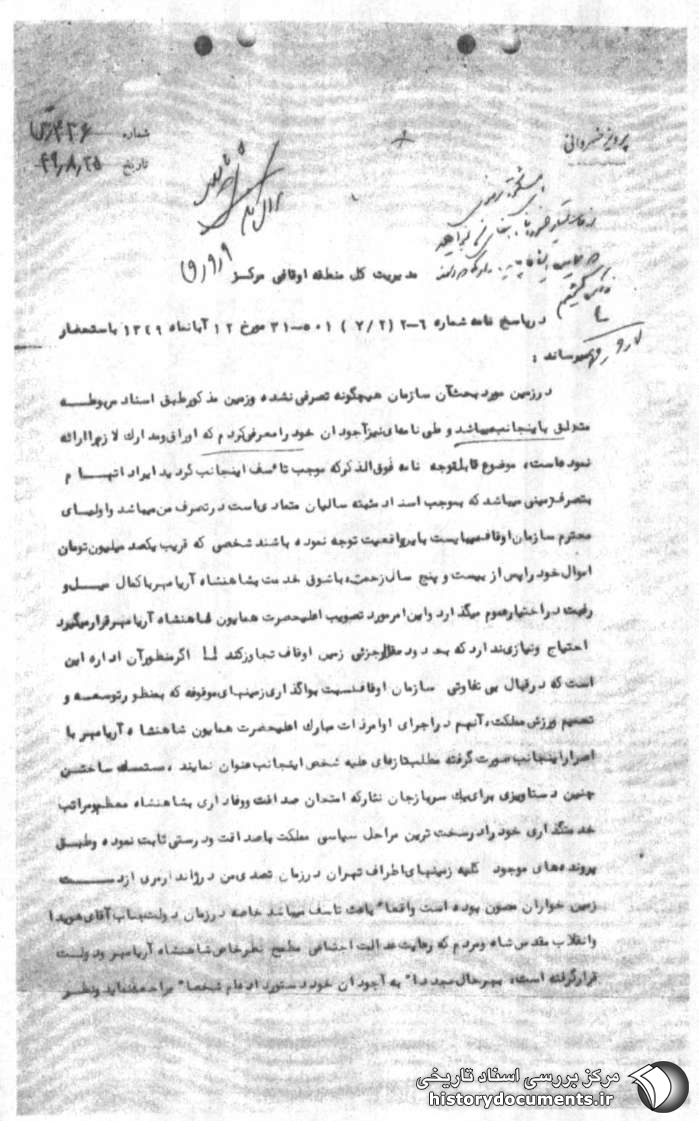 شماره ۴۲۶
تاریخ ۴۹٫۸٫۲۵
پرویز خسروانی
مدیریت کل منطقه اوقافی مرکز
در پاسخ نامه شماره ۶–۲ (۷/۲) ۵۰۱–۳۱ مورخ ۱۲ آبانماه ۱۳۴۹ باستحضار
میرساند :
در زمین مورد بحث آن سازمان هیچگونه تصرفی نشده و زمین مذکور طبق اسناد مربوطه
متعلق باینجانب میباشد و طی نامه‌ای نیز آجودان خود را معرفی کردم که اوراق و مدارک لازم را ارائه
نموده است، موضوع قابل توجه نامه فوق الذکر که موجب تاسف اینجانب گردید ایراد اتهام
بتصرف زمینی میباشد که بموجب اسناد مثبته سالیان متمادی است در تصرف من میباشد و اولیای
محترم سازمان اوقاف میبایست باین واقعیت توجه نموده باشند شخصی که قریب یکصد میلیون تومان
اموال خود را پس از بیست و پنج سال زحمت، با شوق خدمت بشاهنشاه آریامهر با کمال میل و
رغبت در اختیار عموم میگذارد و این امر مورد تصویب اعلیحضرت همایون شاهنشاه آریامهر قرار میگیرد
احتیاج و نیازی ندارد که بحدود مقدار جزئی زمین اوقاف تجاوز کند !! اگر منظور آن اداره این
است که در قبال بی تفاوتی سازمان اوقاف نسبت بواگذاری زمینهای موقوفه که بمنظور توسعه و
تعمیم ورزش مملکت، آنهم در اجرای اوامر ذات مبارک اعلیحضرت همایون شاهنشاه آریامهر با
اصرار اینجانب صورت گرفته مطلب تازه‌ای علیه شخص اینجانب عنوان نمایند، مستمسک ساختن
چنین دستاویزی برای یک سرباز جان نثار که امتحان صداقت و وفاداری بشاهنشاه معظم و مراتب
خدمتگذاری خود را در سخت ترین مراحل سیاسی مملکت با صداقت و درستی ثابت نموده و طبق
پرونده‌های موجود کلیه زمینهای اطراف تهران در زمان تصدی من در ژاندارمری از دست
زمین خواران مصون بوده است واقعا" باعث تاسف میباشد خاصه در زمان دولت جناب آقای هویدا
و انقلاب مقدس شاه و مردم که رعایت عدالت اجتماعی مطمح نظر خاص شاهنشاه آریامهر و دولت
قرار گرفته است، بهرحال مجددا" به آجودان خود دستور داده‌ام شخصا" مراجعه نماید و نظر
مرکز بررسی اسناد تاریخی
historydocuments.ir